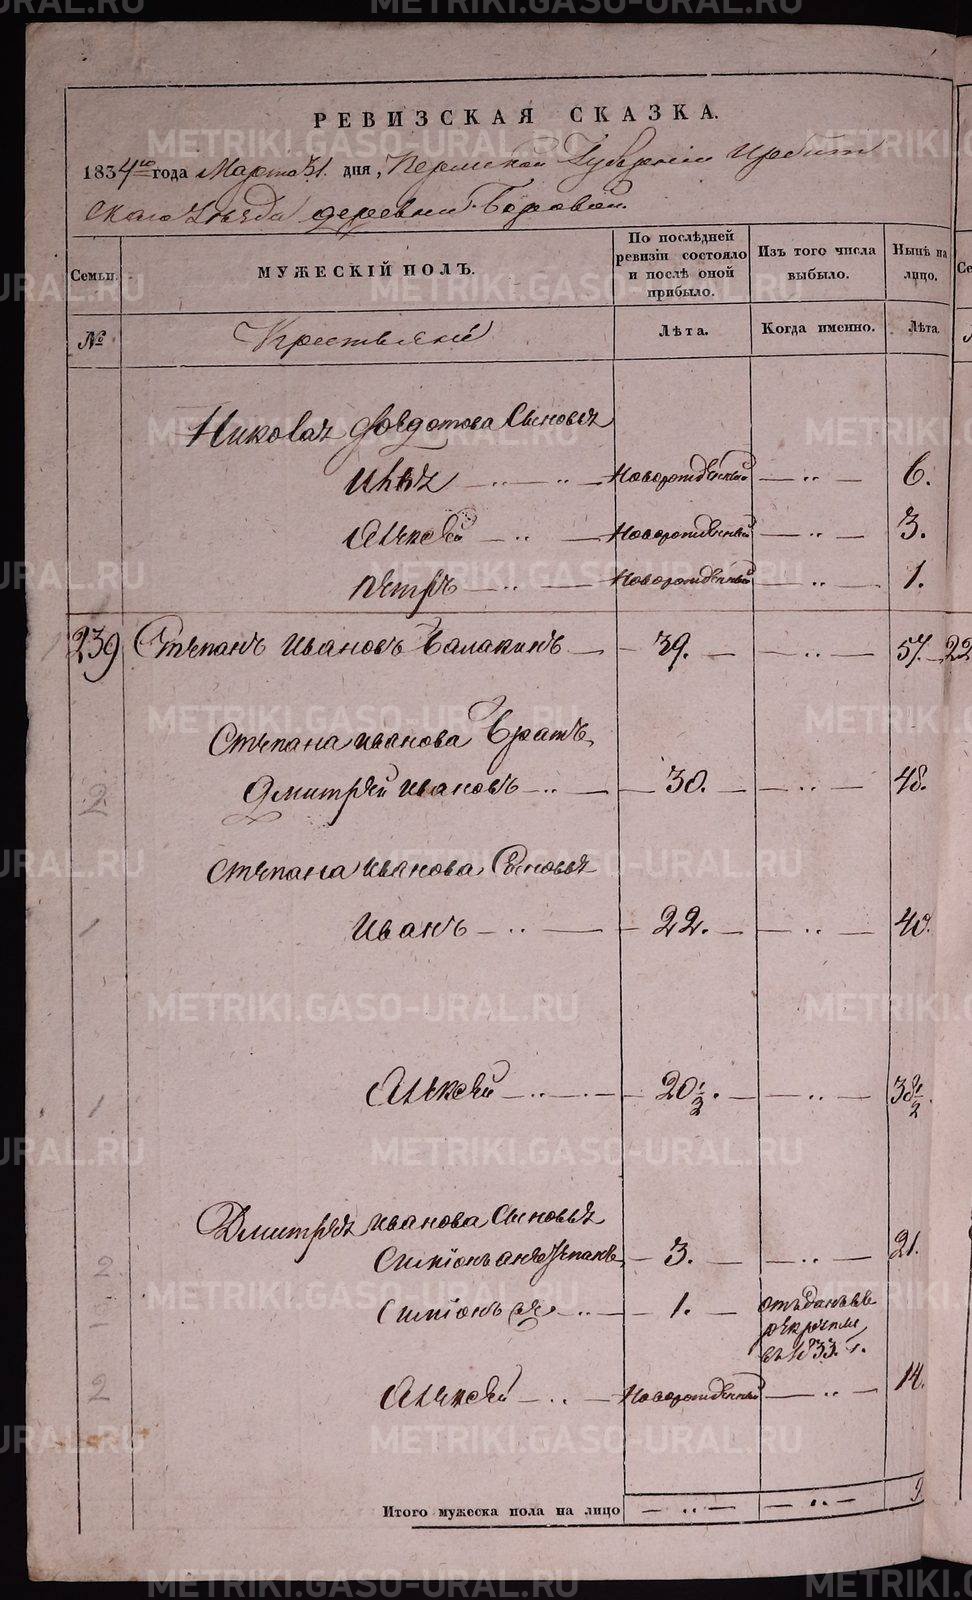 РЕВИЗСКАЯ СКАЗКА.
1834го года Марта 31. дня, Пермской Губернiи Ирбит
скаго Уѣзда деревни Боровой.
Семьи. МУЖЕСКІЙ ПОЛЪ. По послѣдней ревизіи состояло и послѣ оной прибыло. Изъ того числа выбыло. Нынѣ на лицо.
№ Крестьяне Лѣта. Когда именно. Лѣта.
Николая Федотова Сыновья
Новорожденный 6.
Алексѣй Новорожденный 3.
Петръ Новорожденный 1.
239 Степанъ Ивановъ Балакинъ 39. 57. 22
Степана Иванова Братъ,
2. Дмитрей Ивановъ 30. 48.
Степана Иванова Сыновья
1 Иванъ 22. 40.
1 Алексѣй 20 1/2. 38 1/2.
Дмитрея Иванова Сыновья
2 3. 21.
Симіонъ 2й 1. отъданъ въ рекруты въ 1833. г.
2 Алексѣй Новорожденный 14.
Итого мужеска пола на лицо 9
METRIKI.GASO-URAL.RU